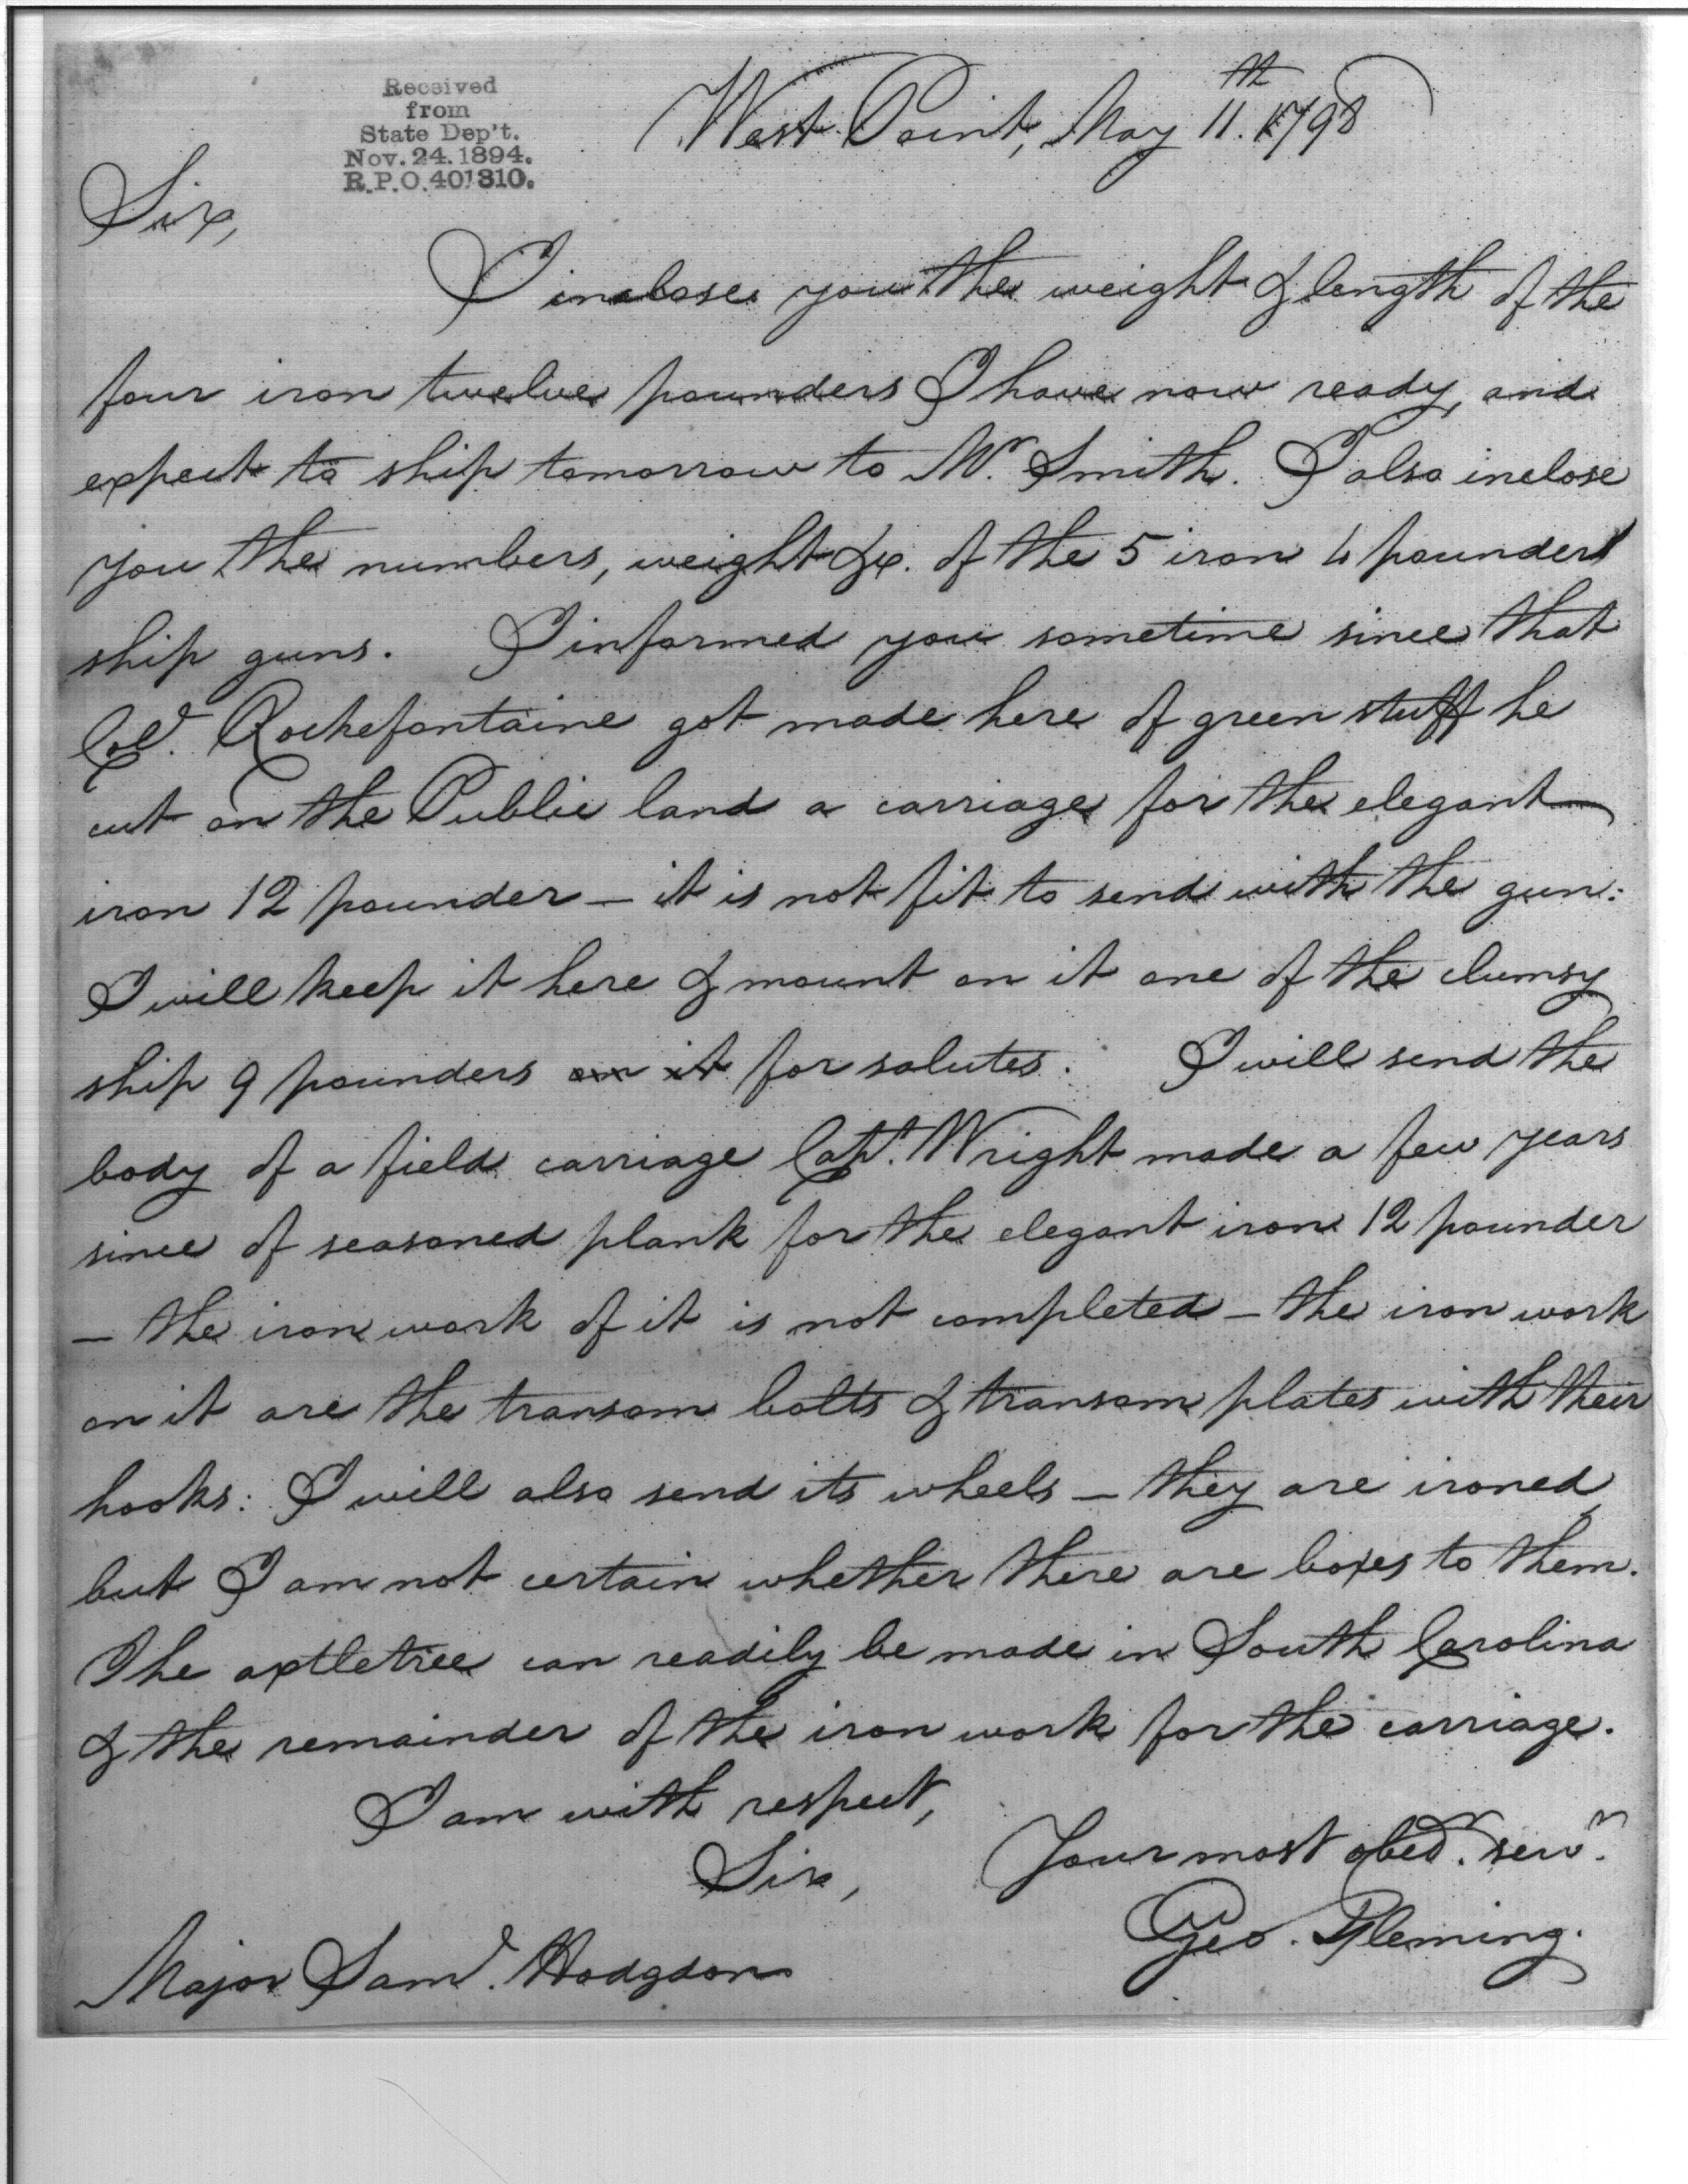 Received
from
State Dep't.
Nov. 24. 1894.
R.P.O. 401310.
West Point, May 11.th 1798
Sir,
I inclose you the weight & length of the
four iron twelve pounders I have now ready, and
expect to ship tomorrow to Mr. Smith. I also inclose
you the numbers, weight &c. of the 5 iron 4 pounders
ship guns. I informed you sometime since that
Col. Rochefontaine got made here of green stuff he
cut on the Public land a carriage for the elegant
iron 12 pounder – it is not fit to send with the gun:
I will keep it here & mount on it one of the clumsy
ship 9 pounders on it for salutes. I will send the
body of a field carriage Capt. Wright made a few years
since of seasoned plank for the elegant iron 12 pounder
– the iron work of it is not completed – the iron work
on it are the transom bolts & transom plates with their
hooks: I will also send its wheels – they are ironed,
but I am not certain whether there are boxes to them.
The axtletree can readily be made in South Carolina
& the remainder of the iron work for the carriage.
I am with respect,
Sir,
Your most obedt. servt.
Geo. Fleming.
Major Saml. Hodgdon